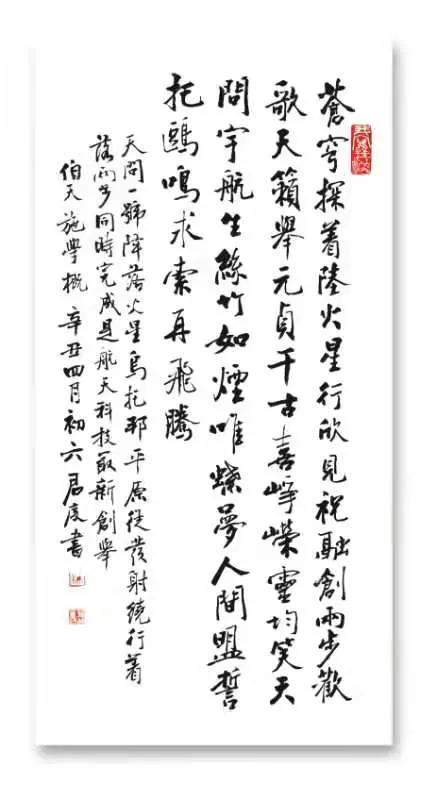 蒼穹探着陸火星行欣見祝融創兩步歡
歌天籟舉元貞千古喜崢嶸靈均笑天
問宇航生絲竹如煙唯蝶夢人間盟誓
托鷗鳴求索再飛騰
天問一號降落火星烏托邦平原從發射繞行着
落兩步同時完成是航天科技最新創舉
伯天施學概 辛丑四月初六 君度書